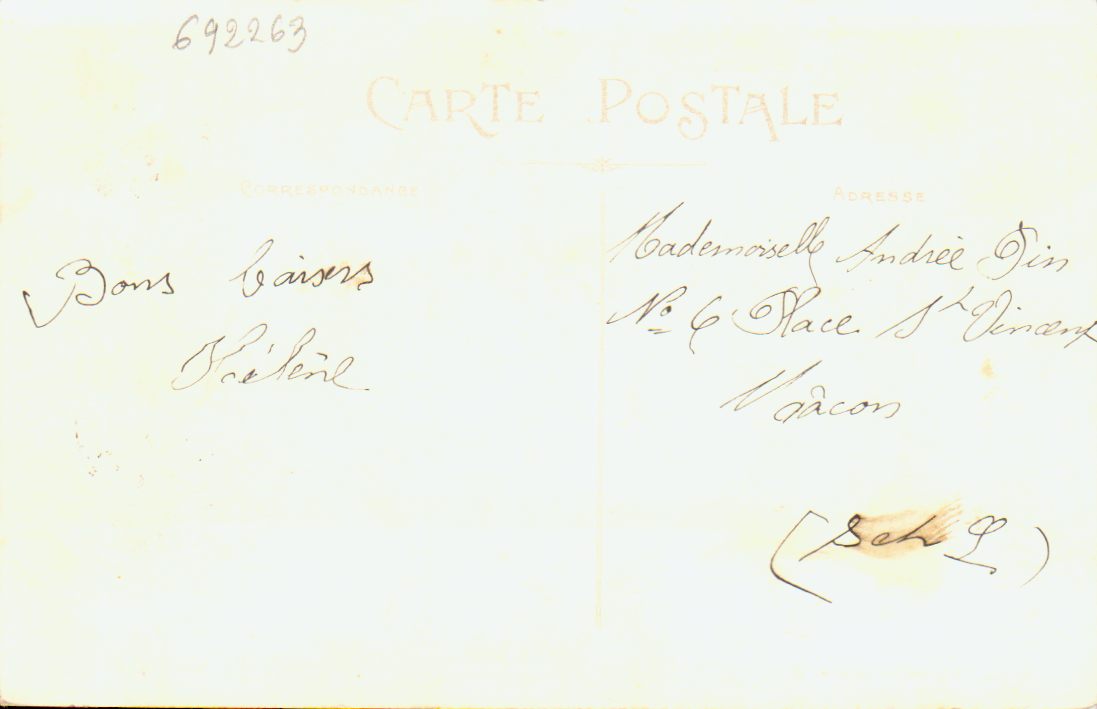 692263
CARTE POSTALE
CORRESPONDANCE
ADRESSE
Bons baisers
Hélène
Mademoiselle Andrée Pin
No 6 Place St Vincent
Mâcon
(S et L)